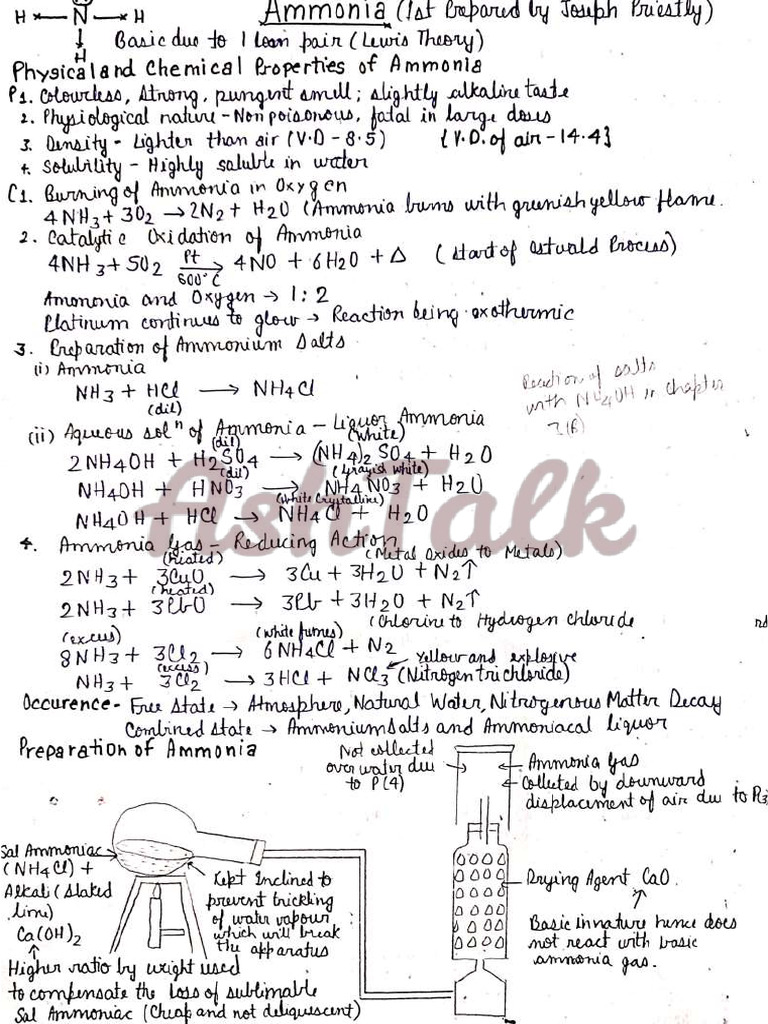 Ammonia (1st Prepared by Joseph Priestly)
H N H
H
Basic due to 1 loan pair (Lewis Theory)
Physical and Chemical Properties of Ammonia
P1. Colourless, Strong, pungent smell; slightly alkaline taste
2. Physiological nature - Non poisonous, fatal in large doses
3. Density - Lighter than air (V.D - 8.5) {V.D. of air - 14.4}
4. Solubility - Highly soluble in water
C1. Burning of Ammonia in Oxygen
4NH3 + 3O2 → 2N2 + H2O (Ammonia burns with greenish yellow flame.
2. Catalytic Oxidation of Ammonia
4NH3 + 5O2 Pt → 600°C 4NO + 6H2O + Δ (start of Ostwald Process)
Ammonia and Oxygen → 1:2
Platinum continues to glow → Reaction being exothermic
3. Preparation of Ammonium Salts
(i) Ammonia
NH3 + HCl (dil) → NH4Cl
Reaction of salts
with NH4OH in chapter
(ii) Aqueous solⁿ of Ammonia - Liquor Ammonia
2NH4OH + H2SO4 (dil) → (NH4)2SO4 (white) + H2O
NH4OH + HNO3 (dil) → NH4NO3 (Grayish white) + H2O
NH4OH + HCl → NH4Cl (White Crystalline) + H2O
AshTalk
4. Ammonia Gas - Reducing Action (Metal Oxides to Metals)
2NH3 + 3CuO (heated) → 3Cu + 3H2O + N2↑
2NH3 + 3PbO (heated) → 3Pb + 3H2O + N2↑
(Chlorine to Hydrogen chloride
8NH3 (excess) + 3Cl2 → 6NH4Cl (white fumes) + N2
NH3 + 3Cl2 (excess) → 3HCl + NCl3 (Nitrogen trichloride)
Yellow and explosive
Occurence - Free State → Atmosphere, Natural Water, Nitrogenous Matter Decay
Combined state → Ammonium Salts and Ammoniacal liquor
Preparation of Ammonia
Not collected
over water due
to P(4)
Ammonia Gas
Collected by downward
displacement of air due to P3
Sal Ammoniac
(NH4Cl) +
Alkali (Slaked
lime)
Ca(OH)2
Kept Inclined to
prevent trickling
of water vapour
which will break
the apparatus
Drying Agent CaO.
Basic in nature hence does
not react with basic
ammonia gas.
Higher ratio by weight used
to compensate the Loss of sublimable
Sal Ammoniac (Cheap and not deliquescent)